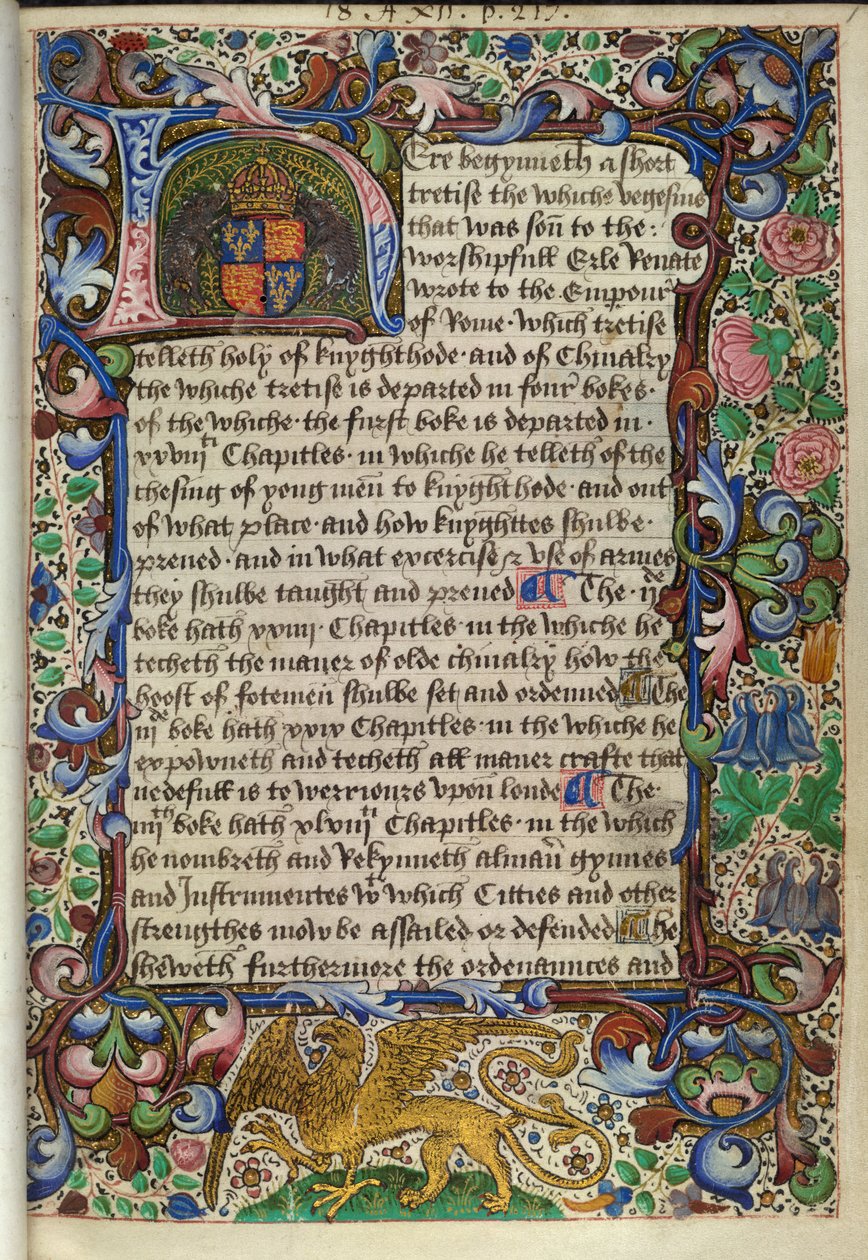 18 A XII. p. 217.
Here begynneth a short
tretise the whiche vegesius
that was son to the :
worshipfull Erle Renate
wrote to the Empour
of Rome · which tretise
telleth holy of knyghthode · and of Chiualry
the whiche tretise is departed in four bokes ·
of the whiche · the furst boke is departed in ·
xxviijti Chapitles · in whiche he telleth of the
chesing of yong men to knyghthode · and out
of what place · and how knyghttes shulbe ·
preued · and in what excercise & vse of armes
they shulbe taught and preued The · ijde
boke hath xxiiij · Chapitles · in the whiche he
techeth the maner of olde chiualry how the
hoost of fotemen shulbe set and ordenned The
iijde boke hath xxix Chapitles · in the whiche he
expowneth and techeth all maner crafte that
nedefull is to werriours vpon londe The ·
iiijth boke hath xlviijti Chapitles · in the which
he nombreth and Rekynneth alman gynnes
and Instrumentes wt which Citties and other
strengthes mow be assailed or defended The
sheweth furthermore the ordenaunces and